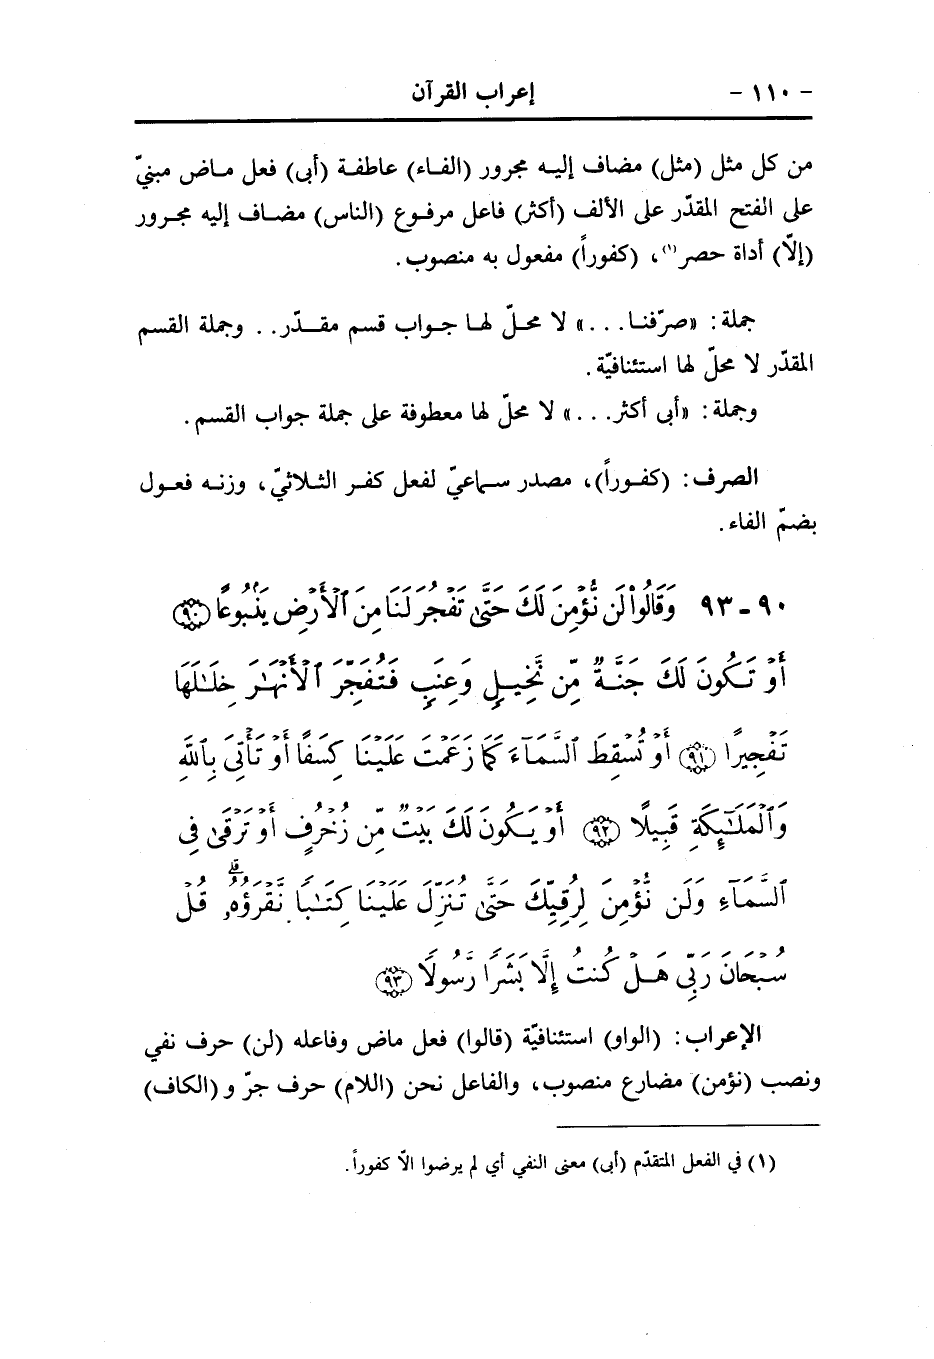 - ١١٠ - إعراب القرآن
من كل مثل (مثل) مضاف إليه مجرور (الفاء) عاطفة (أبى) فعل ماض مبنيّ
على الفتح المقدّر على الألف (أكثر) فاعل مرفوع (الناس) مضاف إليه مجرور
(إلّا) أداة حصر(١)، (كفوراً) مفعول به منصوب.
جملة: «صرّفنا...» لا محلّ لها جواب قسم مقدّر.. وجملة القسم
المقدّر لا محلّ لها استئنافيّة.
وجملة: «أبى أكثر...» لا محلّ لها معطوفة على جملة جواب القسم.
الصرف: (كفوراً)، مصدر سماعيّ لفعل كفر الثلاثيّ، وزنه فعول
بضمّ الفاء.
٩٠ - ٩٣ وَقَالُواْ لَن نُّؤْمِنَ لَكَ حَتَّىٰ تَفْجُرَ لَنَا مِنَ ٱلْأَرْضِ يَنۢبُوعًا (٩٠)
أَوْ تَكُونَ لَكَ جَنَّةٌ مِّن نَّخِيلٍ وَعِنَبٍ فَتُفَجِّرَ ٱلْأَنْهَـٰرَ خِلَـٰلَهَا
تَفْجِيرًا (٩١) أَوْ تُسْقِطَ ٱلسَّمَآءَ كَمَا زَعَمْتَ عَلَيْنَا كِسَفًا أَوْ تَأْتِىَ بِٱللَّهِ
وَٱلْمَلَـٰٓئِكَةِ قَبِيلًا (٩٢) أَوْ يَكُونَ لَكَ بَيْتٌ مِّن زُخْرُفٍ أَوْ تَرْقَىٰ فِى
ٱلسَّمَآءِ وَلَن نُّؤْمِنَ لِرُقِيِّكَ حَتَّىٰ تُنَزِّلَ عَلَيْنَا كِتَـٰبًا نَّقْرَؤُهُۥ ۗ قُلْ
سُبْحَانَ رَبِّى هَلْ كُنتُ إِلَّا بَشَرًا رَّسُولًا (٩٣)
الإعراب: (الواو) استئنافيّة (قالوا) فعل ماض وفاعله (لن) حرف نفي
ونصب (نؤمن) مضارع منصوب، والفاعل نحن (اللام) حرف جرّ و (الكاف)
(١) في الفعل المتقدّم (أبى) معنى النفي أي لم يرضوا الّا كفوراً.